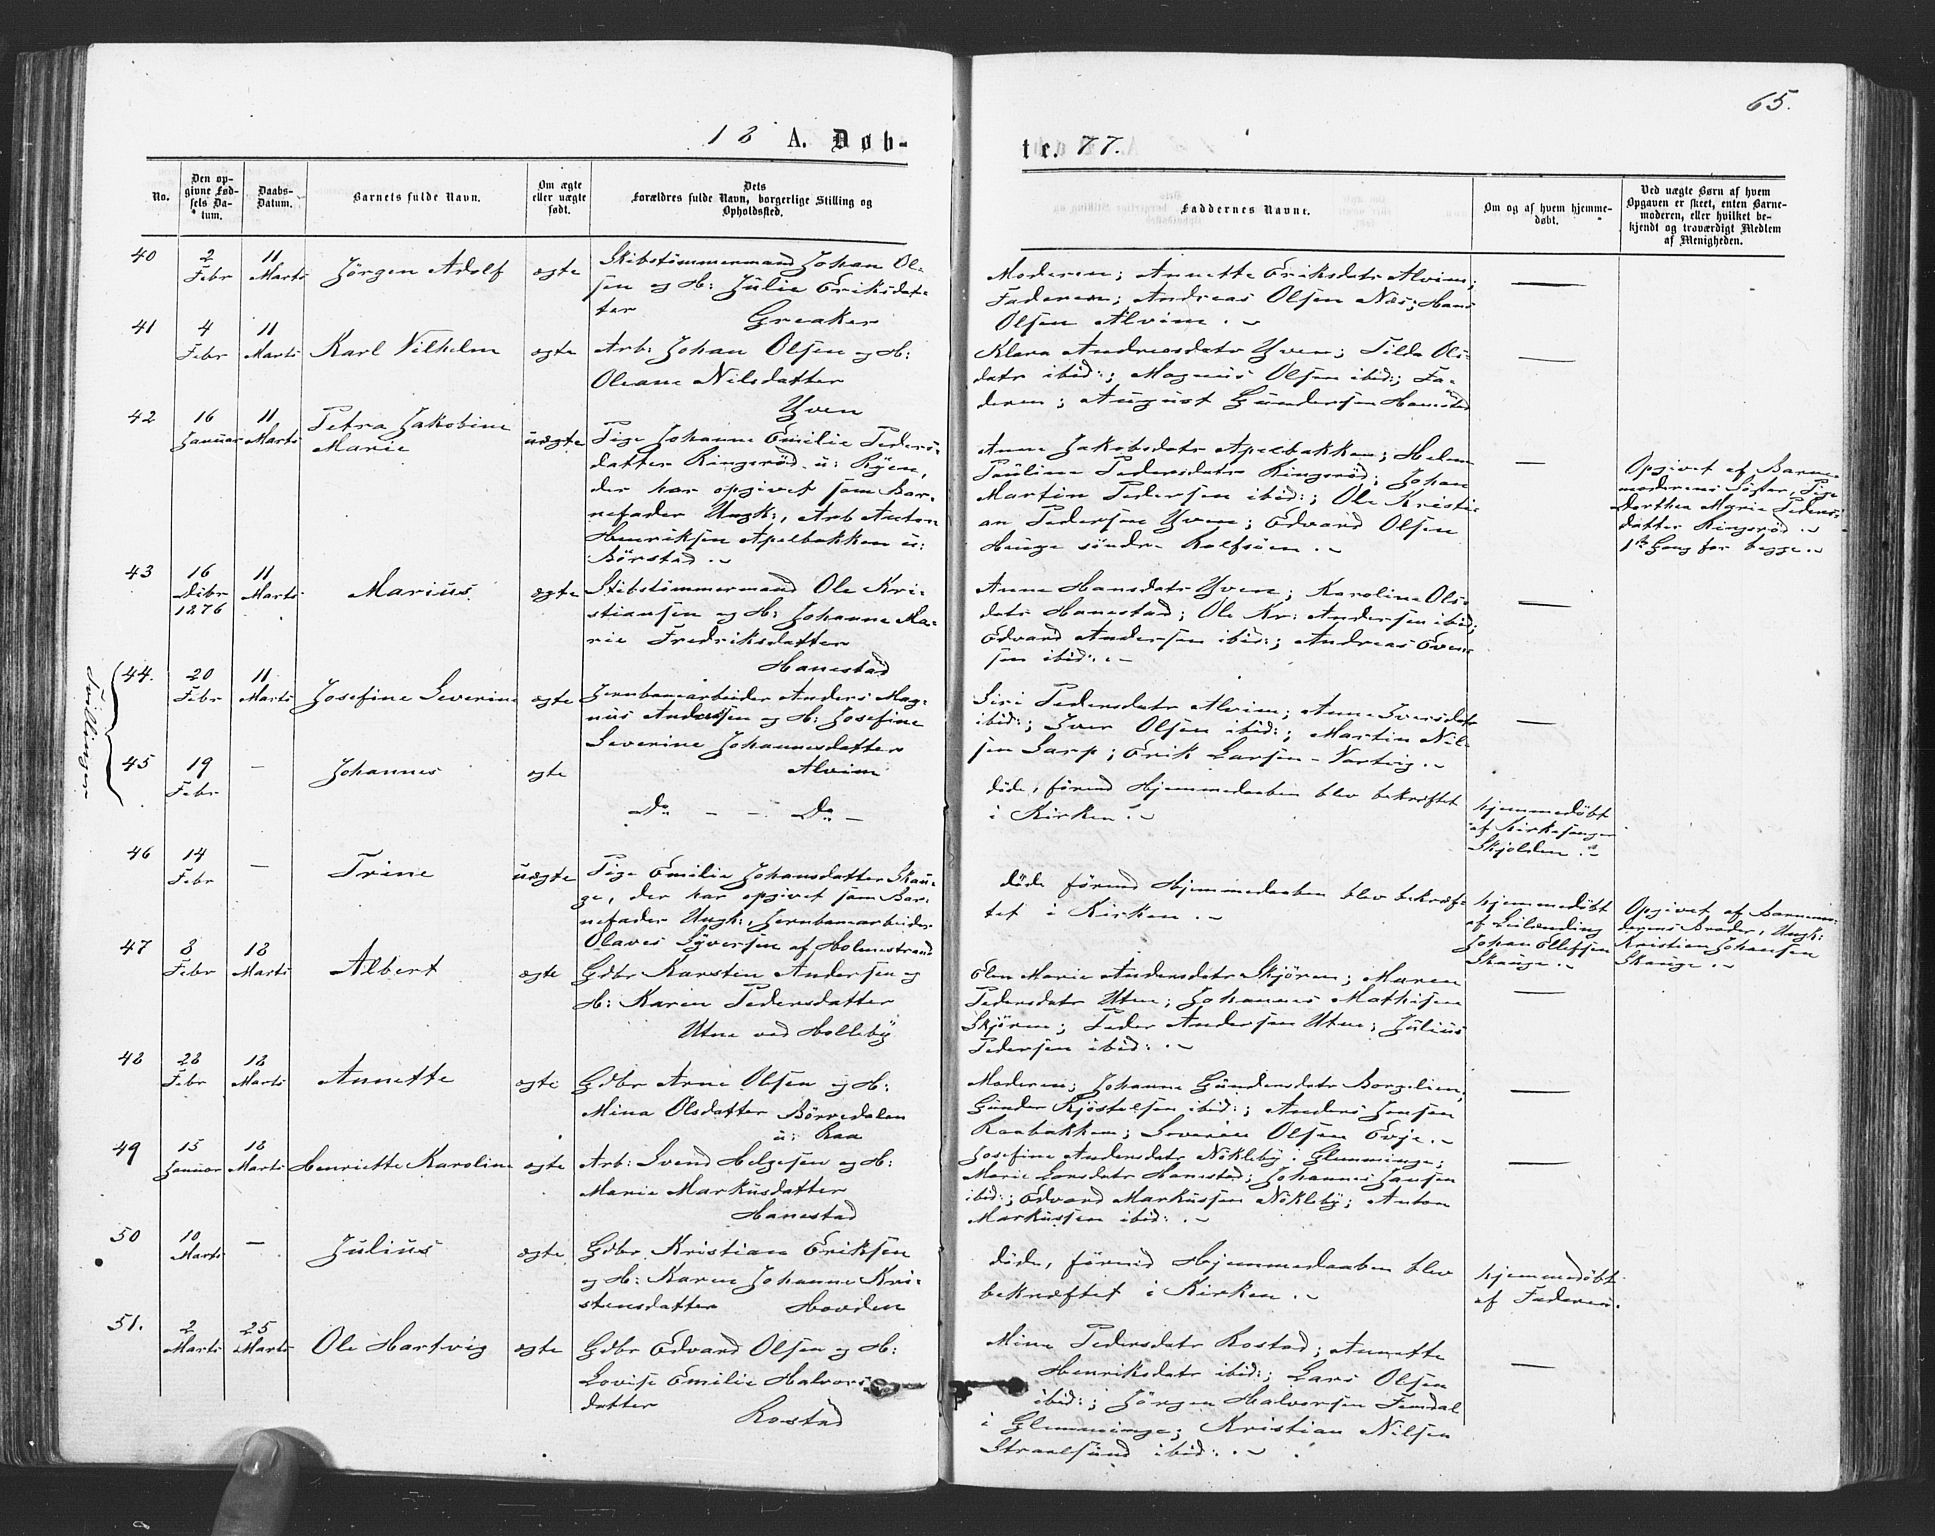 65.
18 A. Døb-
te. 77.
No.
Den op-
givne Fød-
sels Da-
tum.
Daabs-
Datum.
Barnets fulde Navn.
Om ægte
eller uægte
født.
Dets
Forældres fulde Navn, borgerlige Stilling og
Opholdssted.
Faddernes Navne.
Om og af hvem hjemme-
døbt.
Ved uægte Børn af hvem
Opgaven er skeet, enten Barne-
moderen, eller hvilket be-
kjendt og troværdigt Medlem
af Menigheden.
40
2
Febr
11
Marts
Jörgen Adolf
ægte
Skibstömmermand Johan Ol-
sen og H: Julie Eriksdat-
ter
Greaker
Moderen; Annette Eriksdatr Alvim;
Faderen; Andreas Olsen Næs; Hans
Olsen Alvim.
—
41
4
Febr
11
Marts
Karl Vilhelm
ægte
Arb: Johan Olsen og H:
Oleane Nilsdatter
Yven
Klara Andreasdatr Yven; Tilda Ols-
datr ibid:; Magnus Olsen ibid:; Fa-
deren; August Gundersen Hanestad
—
42
16
Januar
11
Marts
Petra Jakobine
Marie
uægte
Pige Johanne Emilie Peders-
datter Ringsröd u: Ryen,
der har opgivet som Bar-
nefader Ungk:, Arb Anton
Henriksen Apelbakken u:
Börstad.
Anne Jakobsdatr Apelbakken; Helen
Pauline Pedersdatr Ringsröd; Johan
Martin Pedersen ibid:; Ole Kristi-
an Pedersen Yven; Edvard Olsen
Hauge söndre Rolfsöen.
—
Opgivet af Barne-
moderens Söster, Pige
Dorthea Marie Peders-
datter Ringsröd.
1ste Gang for begge.
43
16
Debr
1876
11
Marts
Marius
ægte
Skibstömmermand Ole Kri-
stiansen og H: Johanne Ma-
rie Fredriksdatter
Hanestad
Anne Hansdatr Yven; Karoline Ols-
datr Hanestad; Ole Kr: Andersen ibid;
Edvard Andersen ibid:; Andreas Even
sen ibid:.
—
Tvillinger
44.
20
Febr
11
Marts
Josefine Severine
ægte
Jernbanearbeider Anders Mag-
nus Andersen og H: Josefine
Severine Johannesdatter
Alvim
Siri Pedersdatr Alvim; Anne Iversdatr
ibid:; Iver Olsen ibid:; Martin Nil-
sen Sarp; Erik Larsen Vartvig.
—
45
19
Febr
—
Johannes
ægte
Do — — Do —
döde, förend Hjemmedaaben blev bekræftet
i Kirken.
hjemmedöbt
af Kirkesanger
Skjolden.
46
14
Febr
—
Trine
uægte
Pige Emilie Johansdatter Skau-
ge, der har opgivet som Bar-
nefader Ungk: Jernbanearbeider
Olaves Syversen af Holmestrand
döde förend Hjemmedaaben blev bekræf-
tet i Kirken.
hjemmedöbt
af Leilænding
Johan Ellefsen
Skauge.
Opgivet af Barnemo-
derens Broder, Ungk:
Kristian Johansen
Skauge.
47
8
Febr
18
Marts
Albert
ægte
Gdbr Karsten Andersen og
H: Karen Pedersdatter
Utne ved Holleby
Elen Marie Andersdatr Skjören; Maren
Pedersdatr Utne; Johannes Mathisen
Skjören; Peder Andersen Utne; Julius
Pedersen ibid:.
—
48
28
Febr
18
Marts
Annette
ægte
Gdbr Arne Olsen og H:
Mina Olsdatter Börredalen
u: Raa
Moderen; Johanne Gundersdatr Borgelien;
Gunder Kjöstelsen ibid:; Anders Jensen
Raabakken; Severin Olsen Evje.
—
49
15
Januar
18
Marts
Henriette Karoline
ægte
Arb: Svend Helgesen og H:
Marie Markusdatter
Hanestad
Josefine Andersdatr Nökleby i Glemminge;
Marie Larsdatr Hanestad; Johannes Jansen
ibid:; Edvard Markussen Nökleby; Anton
Markussen ibid:.
—
50
10
Marts
—
Julius
ægte
Gdbr Kristian Eriksen
og H: Karen Johanne Kri-
stensdatter Hovden
döde, förend Hjemmedaaben blev
bekræftet i Kirken.
hjemmedöbt
af Faderen.
51.
2
Marts
25
Marts
Ole Hartvig
ægte
Gdbr Edvard Olsen og H:
Lovise Emilie Halvors-
datter
Rostad
Mina Pedersdatr Rostad; Annette
Henriksdatr ibid:; Lars Olsen
ibid:; Jörgen Halvorsen Femdal
i Glemminge; Kristian Nilsen
Straalsund ibid:.
—